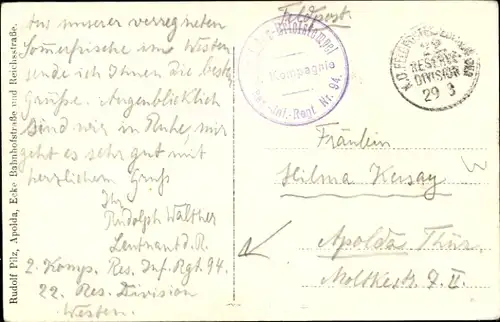 Rudolf Pilz, Apolda, Ecke Bahnhofstraße und Reichsstraße.
Aus unserer verregneten
Sommerfrische im Westen
sende ich Ihnen die besten
Grüße. Augenblicklich
sind wir in Ruhe, mir
geht es sehr gut mit
herzlichem Gruß
Ihr
Rudolph Walther
Leutnant d. R.
2. Komp. Res. Inf. Rgt. 94.
22. Res. Division
Westen.
Feldpost.
Briefstempel
Kompagnie
Res.-Inf.-Regt. Nr. 94.
K.D. FELDPOSTEXP.
22
RESERVE
DIVISION
29 3
Fräulein
Hilma
Apolda Thür.
Moltkestr. 7. II.